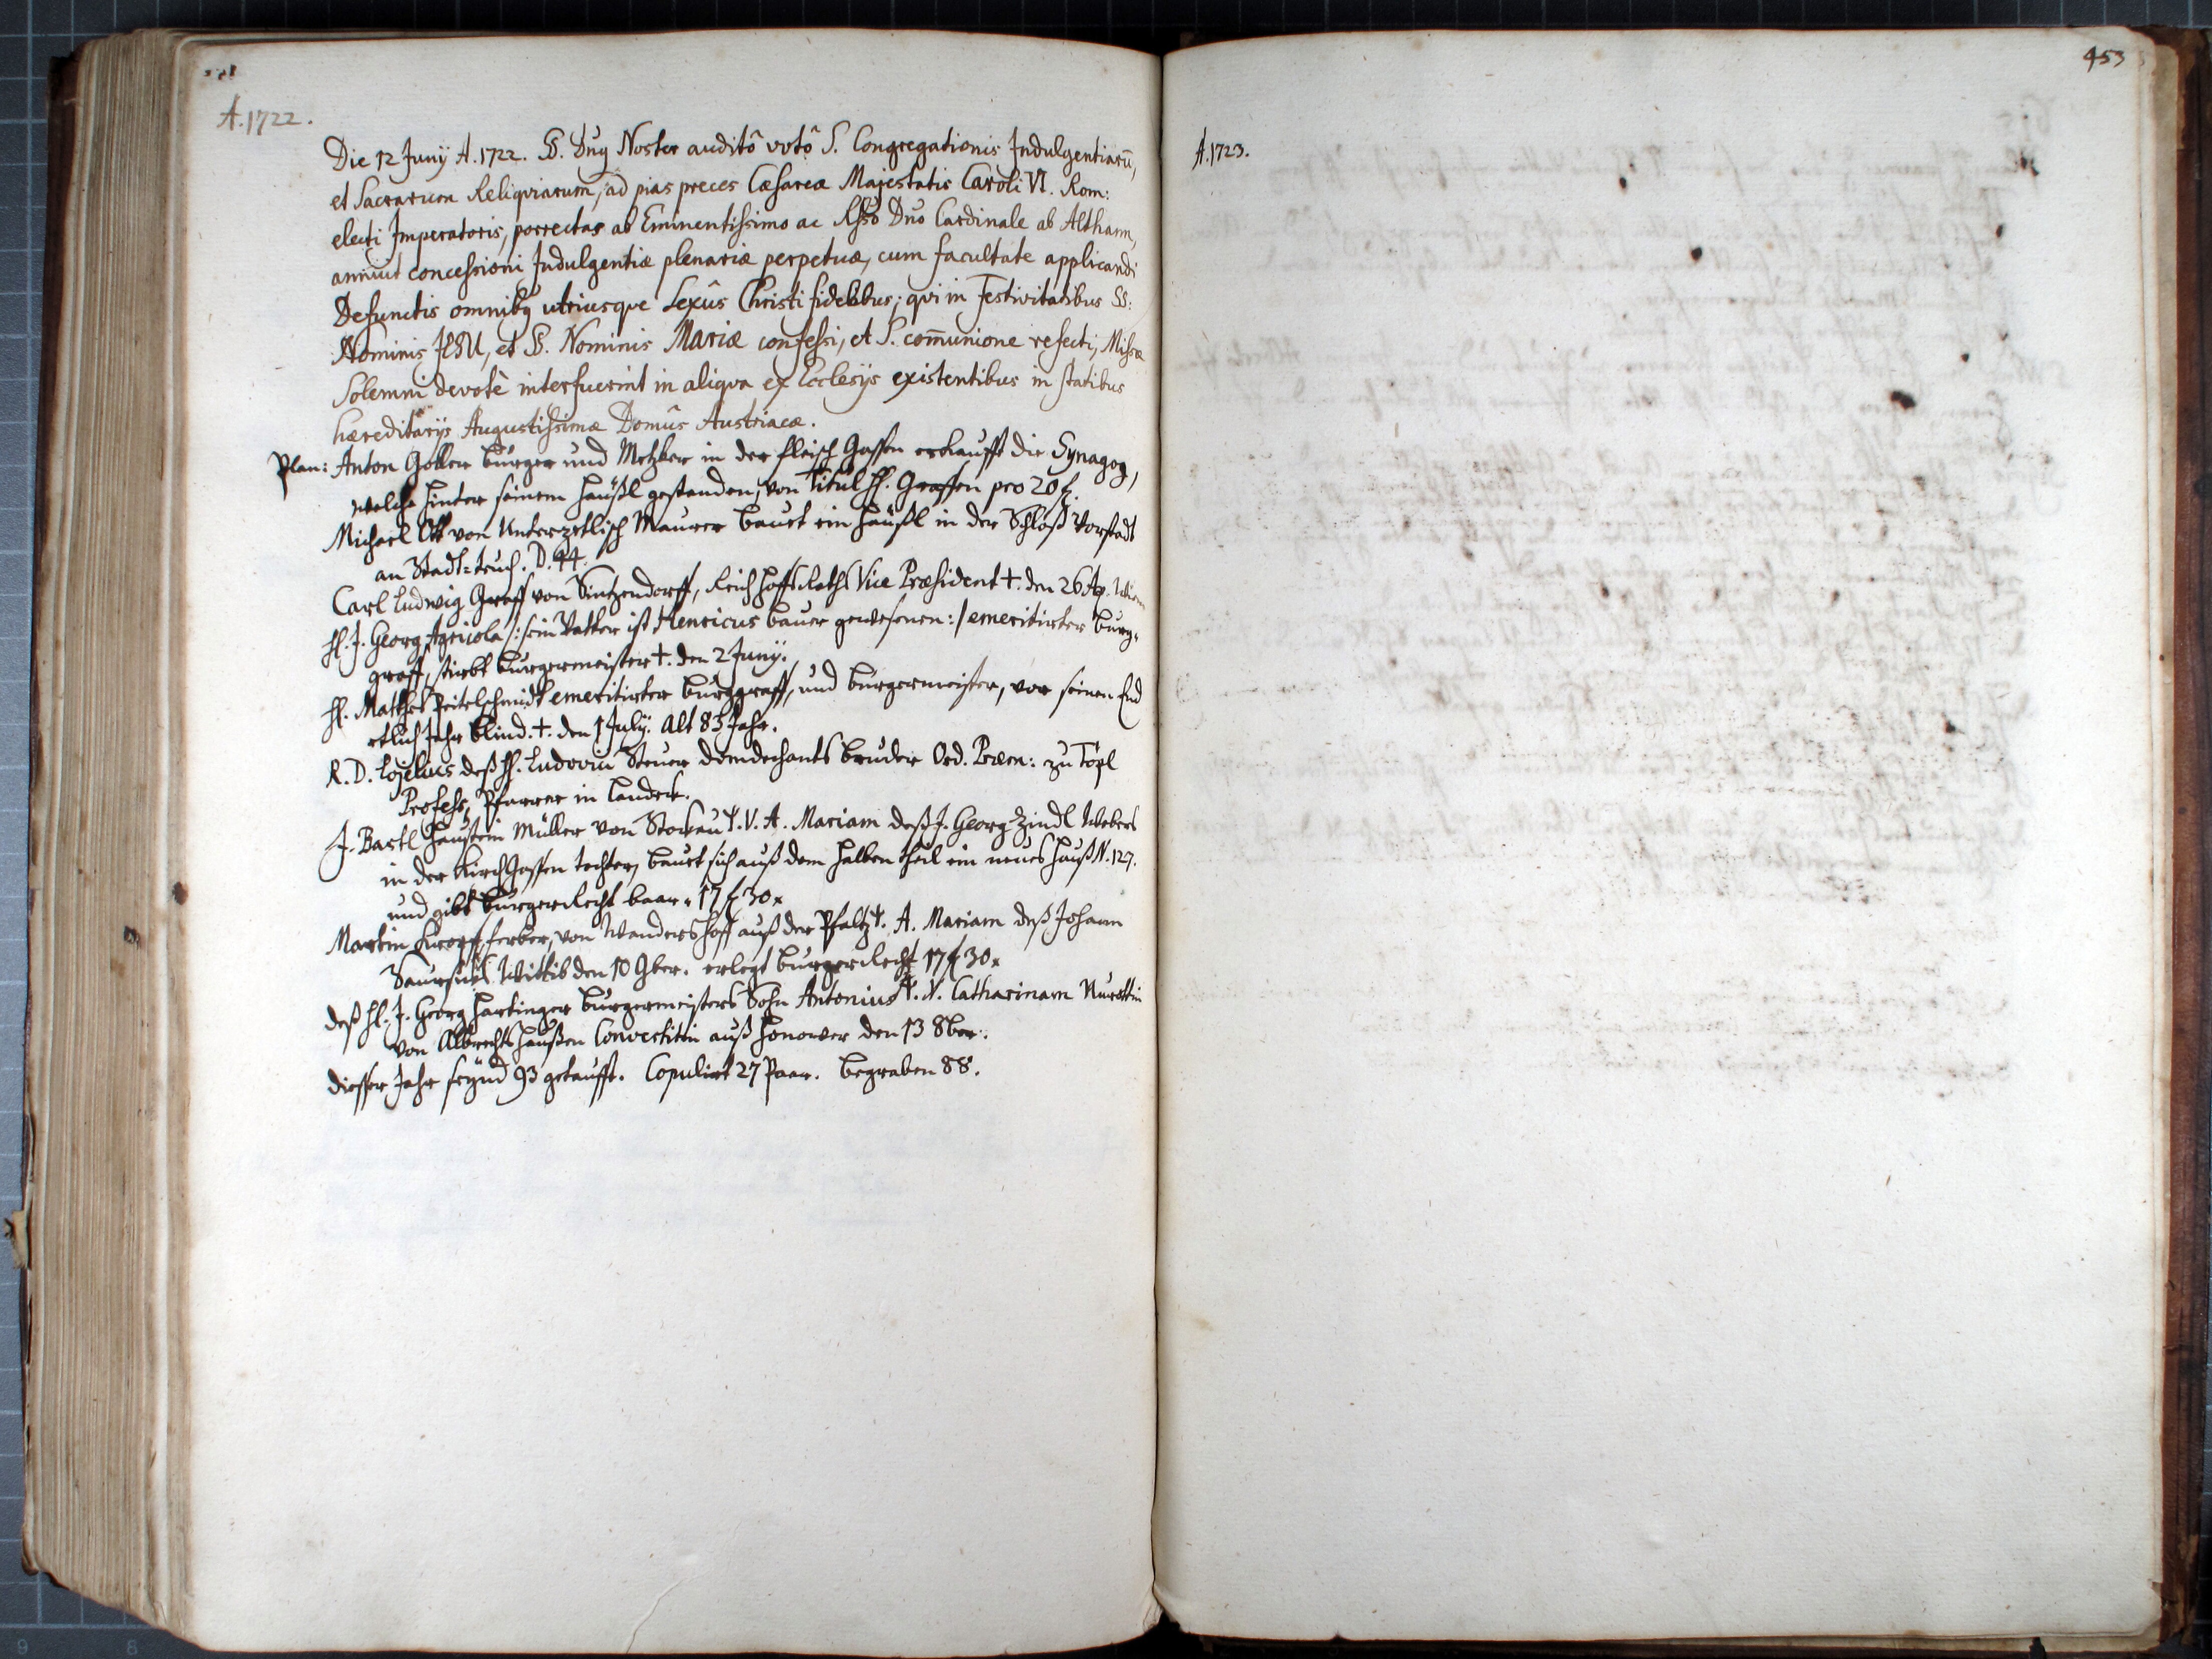 A. 1722.
Die 12 Junÿ A. 1722. SS. Dnꝰ Noster auditô votô S. Congregationis Indulgentiarū,
et Sacrarum Reliqviarum, ad pias preces Cæsareæ Majestatis Caroli VI. Rom:
electi Imperatoris, porrectas ab Eminentissimo ac Rsso Dno Cardinale ab Althann,
annuit concessioni Indulgentiæ plenariæ perpetuæ, cum facultate applicandi
Defunctis omnibꝰ utriusqve Sexûs Christi fidelibus; qvi in Festivitatibus SS:
Nominis JESU, et SS. Nominis Mariæ confessi, et S. com̄unione refecti, Missæ
Solemni devotè interfuerint in aliqva ex Ecclesÿs existentibus in statibus
hæreditarÿs Augustissimæ Domûs Austriacæ.
Plan: Anton Goller burger und Metzker in der fleisch Gassen erkaufft die Synagog,
welche hinter seinem häußl gestanden, von Titul H. Graffen pro 20 f.
Michael Ott von Unterzetlisch Maurer bauet ein häußl in der Schloß Vorstadt
an Stadt-teuch. D. 44.
Carl Ludwig Graff von Sintzendorff, Reich hoffs Raths Vice Præsident †. den 26 Ap. Wien
H. J. Georg Agricola /: sein Vatter ist Henricus bauer gewesenen :/ emeritirter burg-
graff, stirbt burgermeister †. den 2 Junÿ.
H. Mathes Peitelschmidt emeritirter burggraff, und burgermeister, vor seinen End
etlich Jahr blind. †. den 1 Julÿ. alt 83 Jahr.
R. D. Lojelius deß H. Ludovici Steuer domdechants bruder Ord. Præm: zu Töpl
Profess, Pfarrer in Landek.
J. Bartl Haustein Müller von Stokau V. A. Mariam deß J. Georg Zindl Webers
in der KirchGassen tochter, bauet sich auß dem halben theil ein neues hauß N. 127.
und gibt burgerRecht baar 17 f 30 x
Martin ferber, von Wandershoff auß der Pfaltz A. Mariam deß Johann
Wittib den 10 9ber. erlegt burgerRecht 17 f 30 x
deß H. J. Georg Hartinger burgermeisters Sohn Antonius Catharinam
von Albrechtshaußen Convertitin auß Honower den 13 8ber.
diesser Jahr seÿnd 93 getaufft. Copulirt 27 Paar. begraben 88.
453
A. 1723.